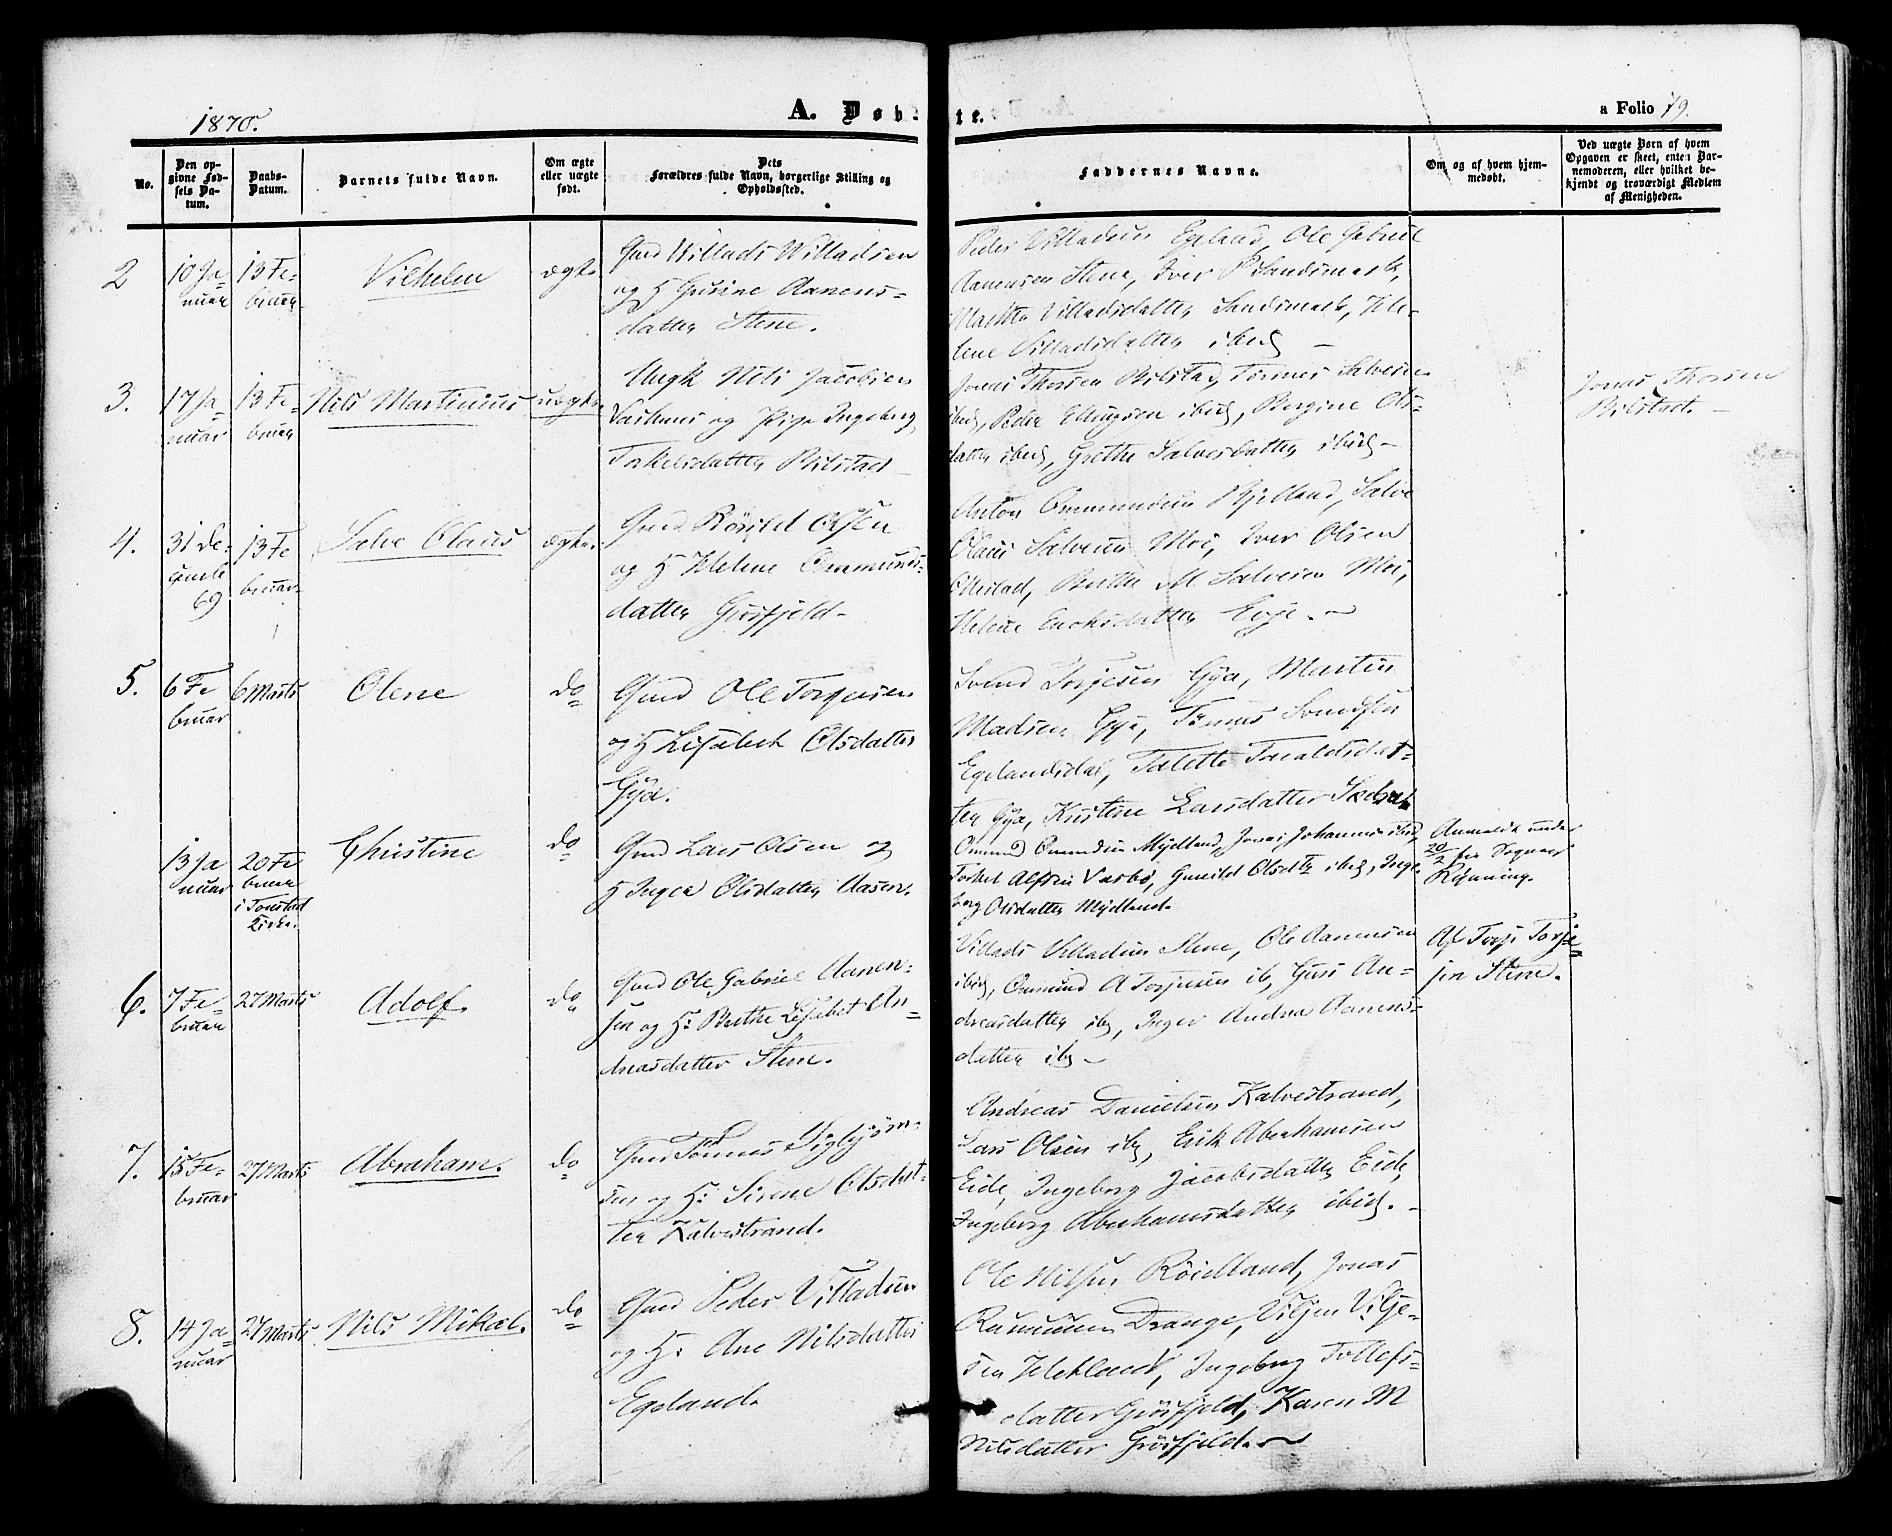 1870.
A. Døbte.
a Folio 79.
No.
Den op-
givne Fød-
sels Da-
tum.
Daabs-
Datum.
Barnets fulde Navn.
Om ægte
eller uægte
født.
Dets
Forældres fulde Navn, borgerlige Stilling og
Opholdssted.
Faddernes Navne.
Om og af hvem hjem-
medøbt.
Ved uægte Børn af hvem
Opgaven er skeet, enten Bar-
nemoderen, eller hvilket be-
kjendt og troværdigt Medlem
af Menigheden.
2
10 Ja-
nuar
13 Fe-
bruar
Vilhelm
ægte
Gmd Willads Willadsen
og H Gurine Aanens-
datter Stene.
Peder Villadsen Egeland, Ole Gabriel
Aanensen Stene, Iver P Sandsmark,
Villadsdatter Sandsmark, Hele-
lene Villadsdatter ibid
3.
17 Ja-
nuar
13 Fe-
bruar
Nils Martinius
uægte
Ungk Nils Jacobsen
og Pige Ingeborg
Torkelsdatter Bilstad
Jonas Thorsen Bilstad, Tønnes Salvesen
ibid, Peder Ellingsen ibid, Bergine Ols-
datter ibid, Grethe Salvesdatter ibid
Jonas Thorsen
Bilstad.
4.
31 De-
cembe
69
13 Fe
bruar
Salve Olaus
ægte.
Gmd Røinld Olsen
og H Helene Ommunds-
datter Grøsfjeld
Anton Ommundsen Bjelland, Salve
Olaus Salvesen Moi, Iver Olsen
Ollestad, Berthe M. Salvesen Moi,
Helene Enoksdatter Evje.
5.
6 Fe
bruar
6 Marts
Olene
do
Gmd Ole Torgersen
og H Lisabeth Olsdatter
Gya.
Svend Torjesen Gya, Martin
Madsen Gya, Tønnes Svendsen
Egelandsdal, Talette Toraldsdat-
ter Gya, Kristine Larsdatter
13 Ja
nuar
20 Fe
bruar
i Tonstad
Kirke.
Christine
do
Gmd Lars Olsen og
H Inger Olsdatter Aasen.
Ommund Ommundsen Mydland, Jonas Johannesen ibid,
Torkel Alfsen Vasbø, Gunild Olsdtr ibid, Inge-
borg Olsdatter Mydland.
Anmeldt under
20/2 fra Sogner
6.
7 Fe-
bruar
27 Marts
Adolf.
do
Gmd Ole Gabriel Aanen-
sen og H: Berthe Lisabet An-
dreasdatter Stene.
Villads Villadsen Stene, Ole Aanensen
ibid, Ommund A Torjusen ib, Guri An-
dreasdatter ibg, Inger Andrea Aanens-
datter ibg
Af Torje Torje
sen Stene.
7.
15 Fe-
bruar
27 Marts
Abraham.
do
Gmd Tønnes Sigbjørn-
sen og H: Sirene Olsdat-
ter Kalvestrand.
Andreas Danielsen Kalvestrand,
Lars Olsen ibg, Erik Abrahamsen
Eide, Ingeborg Jacobsdatter Eide,
Ingeborg Abrahamsdatter ibid.
8.
14 Ja-
nuar
27 Marts
Nils Mikal.
do
Gmd Peder Villadsen
og H: Ane Nilsdatter
Egeland.
Ole Nilsen Røidland, Jonas
Rasmussen Drange, Viljen Vilje-
sen, Ingeborg Tollefs-
datter Grøsfjeld, Karen M
Nilsdatter Grøsfjeld.